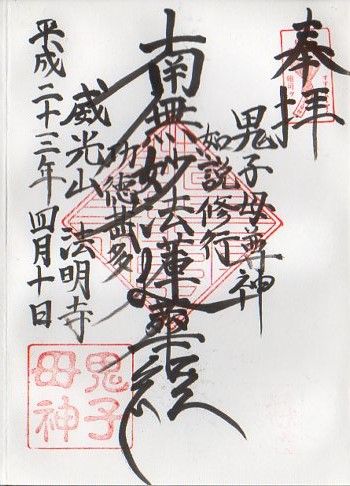 奉拝
鬼子母尊神
如説修行
南無妙法蓮華経
功徳甚多
威光山 法明寺
平成二十三年四月十日
鬼子母神